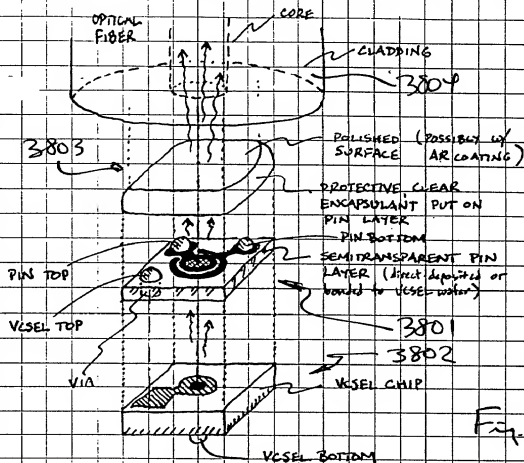 OPTICAL
FIBER
CORE
CLADDING
3804
3803
POLISHED (POSSIBLY W/
SURFACE AR COATING)
PROTECTIVE CLEAR
ENCAPSULANT PUT ON
PIN LAYER
PIN BOTTOM
SEMITRANSPARENT PIN
LAYER (direct deposited or
bonded to VCSEL wafer)
PIN TOP
VCSEL TOP
VIA
3801
3802
VCSEL CHIP
VCSEL BOTTOM
Fig.